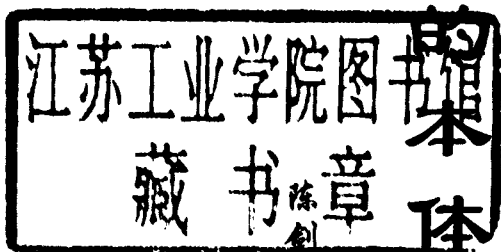 江苏工业学院图书馆
藏书章
的本体
陈剑